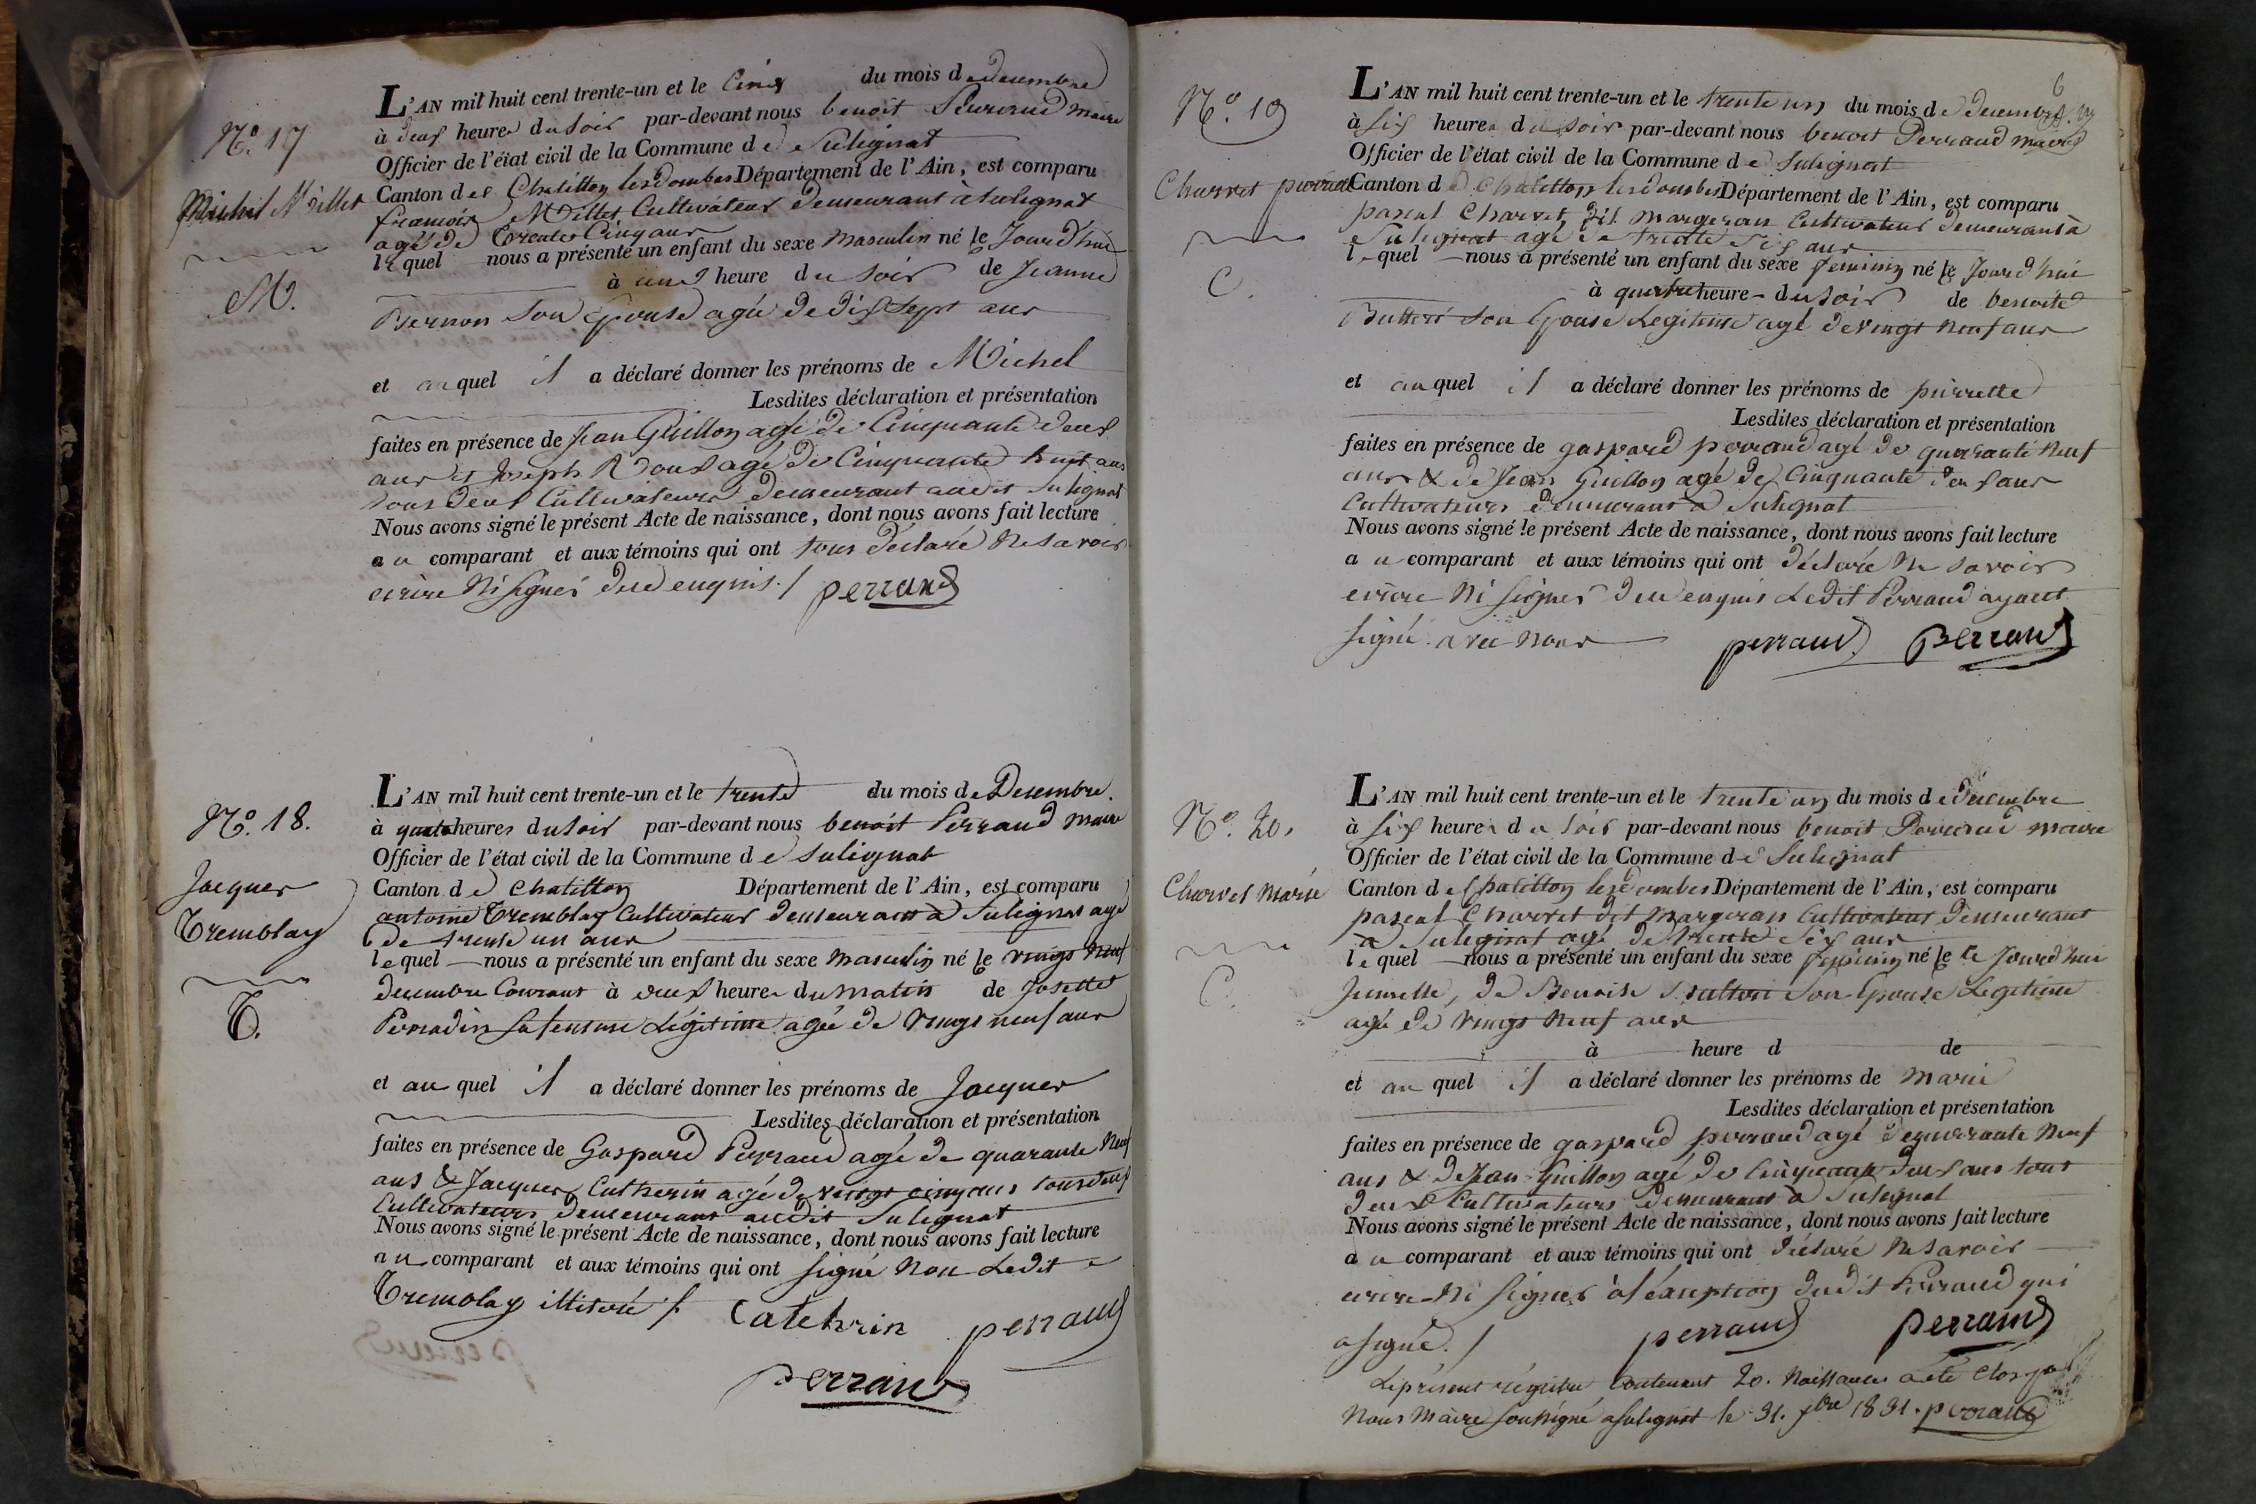 N.º 17
Michel Millet
M.
L'AN mil huit cent trente-un et le Cinq du mois de decembre
à deux heures du soir par-devant nous benoit Perraud maire
Officier de l'état civil de la Commune de Sulignat
Canton de Chatillon les dombes Département de l'Ain, est comparu
francois Millet Cultivateur demeurant à Sulignat
agé de trente Cinq ans
lequel nous a présenté un enfant du sexe masculin né le Jourd'hui
à une heure du soir de Jeanne
Bernon son Epouse agée de dix sept ans
et auquel il a déclaré donner les prénoms de Michel
Lesdites déclaration et présentation
faites en présence de Jean Guillon agé de Cinquante deux
ans et Joseph agé de Cinquante huit ans
tous deux Cultivateurs demeurant audit Sulignat
Nous avons signé le présent Acte de naissance, dont nous avons fait lecture
au comparant et aux témoins qui ont tous déclaré ne savoir
ecrire Ni signer de ce enquis ./ perraud
N.º 18.
Jacques
Tremblay
T.
L'AN mil huit cent trente-un et le trente du mois de Desembre.
à quatre heures du soir par-devant nous benoit Perraud maire
Officier de l'état civil de la Commune de Sulignat
Canton de Chatillon Département de l'Ain, est comparu
antoine Tremblay Cultivateur demeurant à Sulignat agé
de trente un ans
lequel nous a présenté un enfant du sexe masculin né le vingt neuf
decembre Courant à deux heures du matin de Josette
Perradin sa femme Légitime agée de vingt neuf ans
et au quel il a déclaré donner les prénoms de Jacques
Lesdites déclaration et présentation
faites en présence de Gaspard Perraud agé de quarante Neuf
ans & Jacques Cutherin agé de vingt cinq ans tous deux
Cultivateurs demeurant audit Sulignat
Nous avons signé le présent Acte de naissance, dont nous avons fait lecture
au comparant et aux témoins qui ont signé Non Ledit
Tremblay illiteré ./ Catehrin perraud
perraud
6
N.º 19
Charvet pierrette
C.
L'AN mil huit cent trente-un et le trente un du mois de decembre
à six heures du soir par-devant nous benoit Perraud maire
Officier de l'état civil de la Commune de Sulignat
Canton de Chatillon les dombes Département de l'Ain, est comparu
pascal Charvet dit margeran Cultivateur demeurant à
Sulignat agé de trente six ans
lequel nous a présenté un enfant du sexe feminin né le Jourd'hui
à quatre heures du soir de benoite
son Epouse Legitime agé de vingt neuf ans
et au quel il a déclaré donner les prénoms de pierrette
Lesdites déclaration et présentation
faites en présence de gaspard perraud agé de quarante neuf
ans & de Jean Guillon agé de Cinquante deux ans
Cultivateurs demeurant a Sulignat
Nous avons signé le présent Acte de naissance, dont nous avons fait lecture
au comparant et aux témoins qui ont déclaré Ne savoir
ecrire Ni signer de ce enquis Ledit Perraud ayant
signé avec nous perraud perraud
N.º 20.
Charvet Marie
C.
L'AN mil huit cent trente-un et le trente un du mois de décembre
à six heures du soir par-devant nous benoit Perraud maire
Officier de l'état civil de la Commune de Sulignat
Canton de Chatillon les dombes Département de l'Ain, est comparu
pascal Charvet dit margeran Cultivateur demeurant
à Sulignat agé de trente six ans
lequel nous a présenté un enfant du sexe feminin né le le Jourd'hui
Jumelle, de Benoite son Epouse Legitime
agé de vingt Neuf ans
à heure d de
et au quel il a déclaré donner les prénoms de marie
Lesdites déclaration et présentation
faites en présence de gaspard perraud agé de quarante Neuf
ans & de Jean Guillon agé de Cinquante deux ans tous
deux Cultivateurs demeurant a Sulignat
Nous avons signé le présent Acte de naissance, dont nous avons fait lecture
au comparant et aux témoins qui ont déclaré Ne savoir
ecrire Ni signer à l'exeption dudit Perraud qui
a signé. / perraud perraud
Le présent régistre Contenant 20. Naissances a été Clos par
Nous Maire soussigné a Sulignat le 31. xbre 1831. perraud